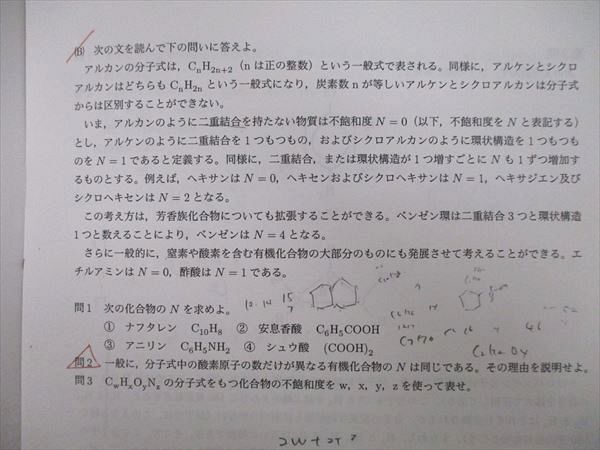 (B) 次の文を読んで下の問いに答えよ。
アルカンの分子式は，CnH2n+2（n は正の整数）という一般式で表される。同様に，アルケンとシクロ
アルカンはどちらも CnH2n という一般式になり，炭素数 n が等しいアルケンとシクロアルカンは分子式
からは区別することができない。
いま，アルカンのように二重結合を持たない物質は不飽和度 N = 0（以下，不飽和度を N と表記する）
とし，アルケンのように二重結合を１つもつもの，およびシクロアルカンのように環状構造を１つもつも
のを N = 1 であると定義する。同様に，二重結合，または環状構造が１つ増すごとに N も１ずつ増加す
るものとする。例えば，ヘキサンは N = 0，ヘキセンおよびシクロヘキサンは N = 1，ヘキサジエン及び
シクロヘキセンは N = 2 となる。
この考え方は，芳香族化合物についても拡張することができる。ベンゼン環は二重結合３つと環状構造
１つと数えることにより，ベンゼンは N = 4 となる。
さらに一般的に，窒素や酸素を含む有機化合物の大部分のものにも発展させて考えることができる。エ
チルアミンは N = 0，酢酸は N = 1 である。
問１ 次の化合物の N を求めよ。
① ナフタレン C10H8 ② 安息香酸 C6H5COOH
③ アニリン C6H5NH2 ④ シュウ酸 (COOH)2
問２ 一般に，分子式中の酸素原子の数だけが異なる有機化合物の N は同じである。その理由を説明せよ。
問３ CwHxOyNz の分子式をもつ化合物の不飽和度を w，x，y，z を使って表せ。